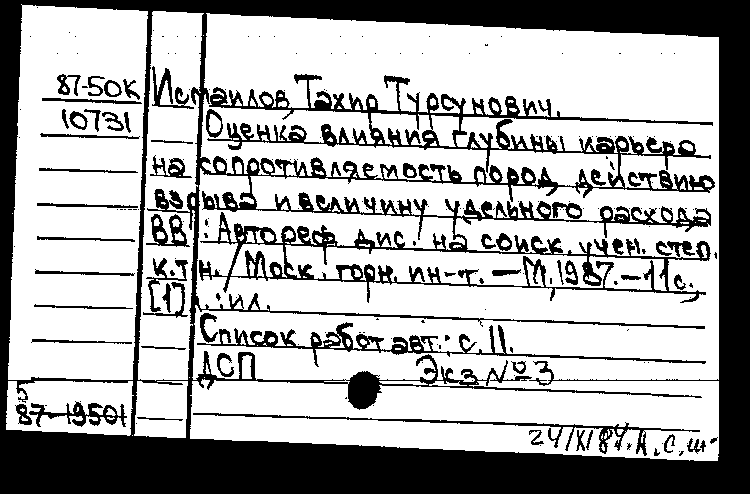 87-50К Исмаилов, Тахир Турсунович.
10731 Оценка влияния глубины карьера
на сопротивляемость пород действию
взрыва и величину удельного расхода
ВВ : Автореф. дис. на соиск. учен. степ.
к.т.н. / Моск. горн. ин-т. — М, 1987. — 11 с.,
[1] л. : ил.
Список работ авт.: с. 11.
ДСП Экз № 3
5
87-19501
24/XI 87. А. С. ш-